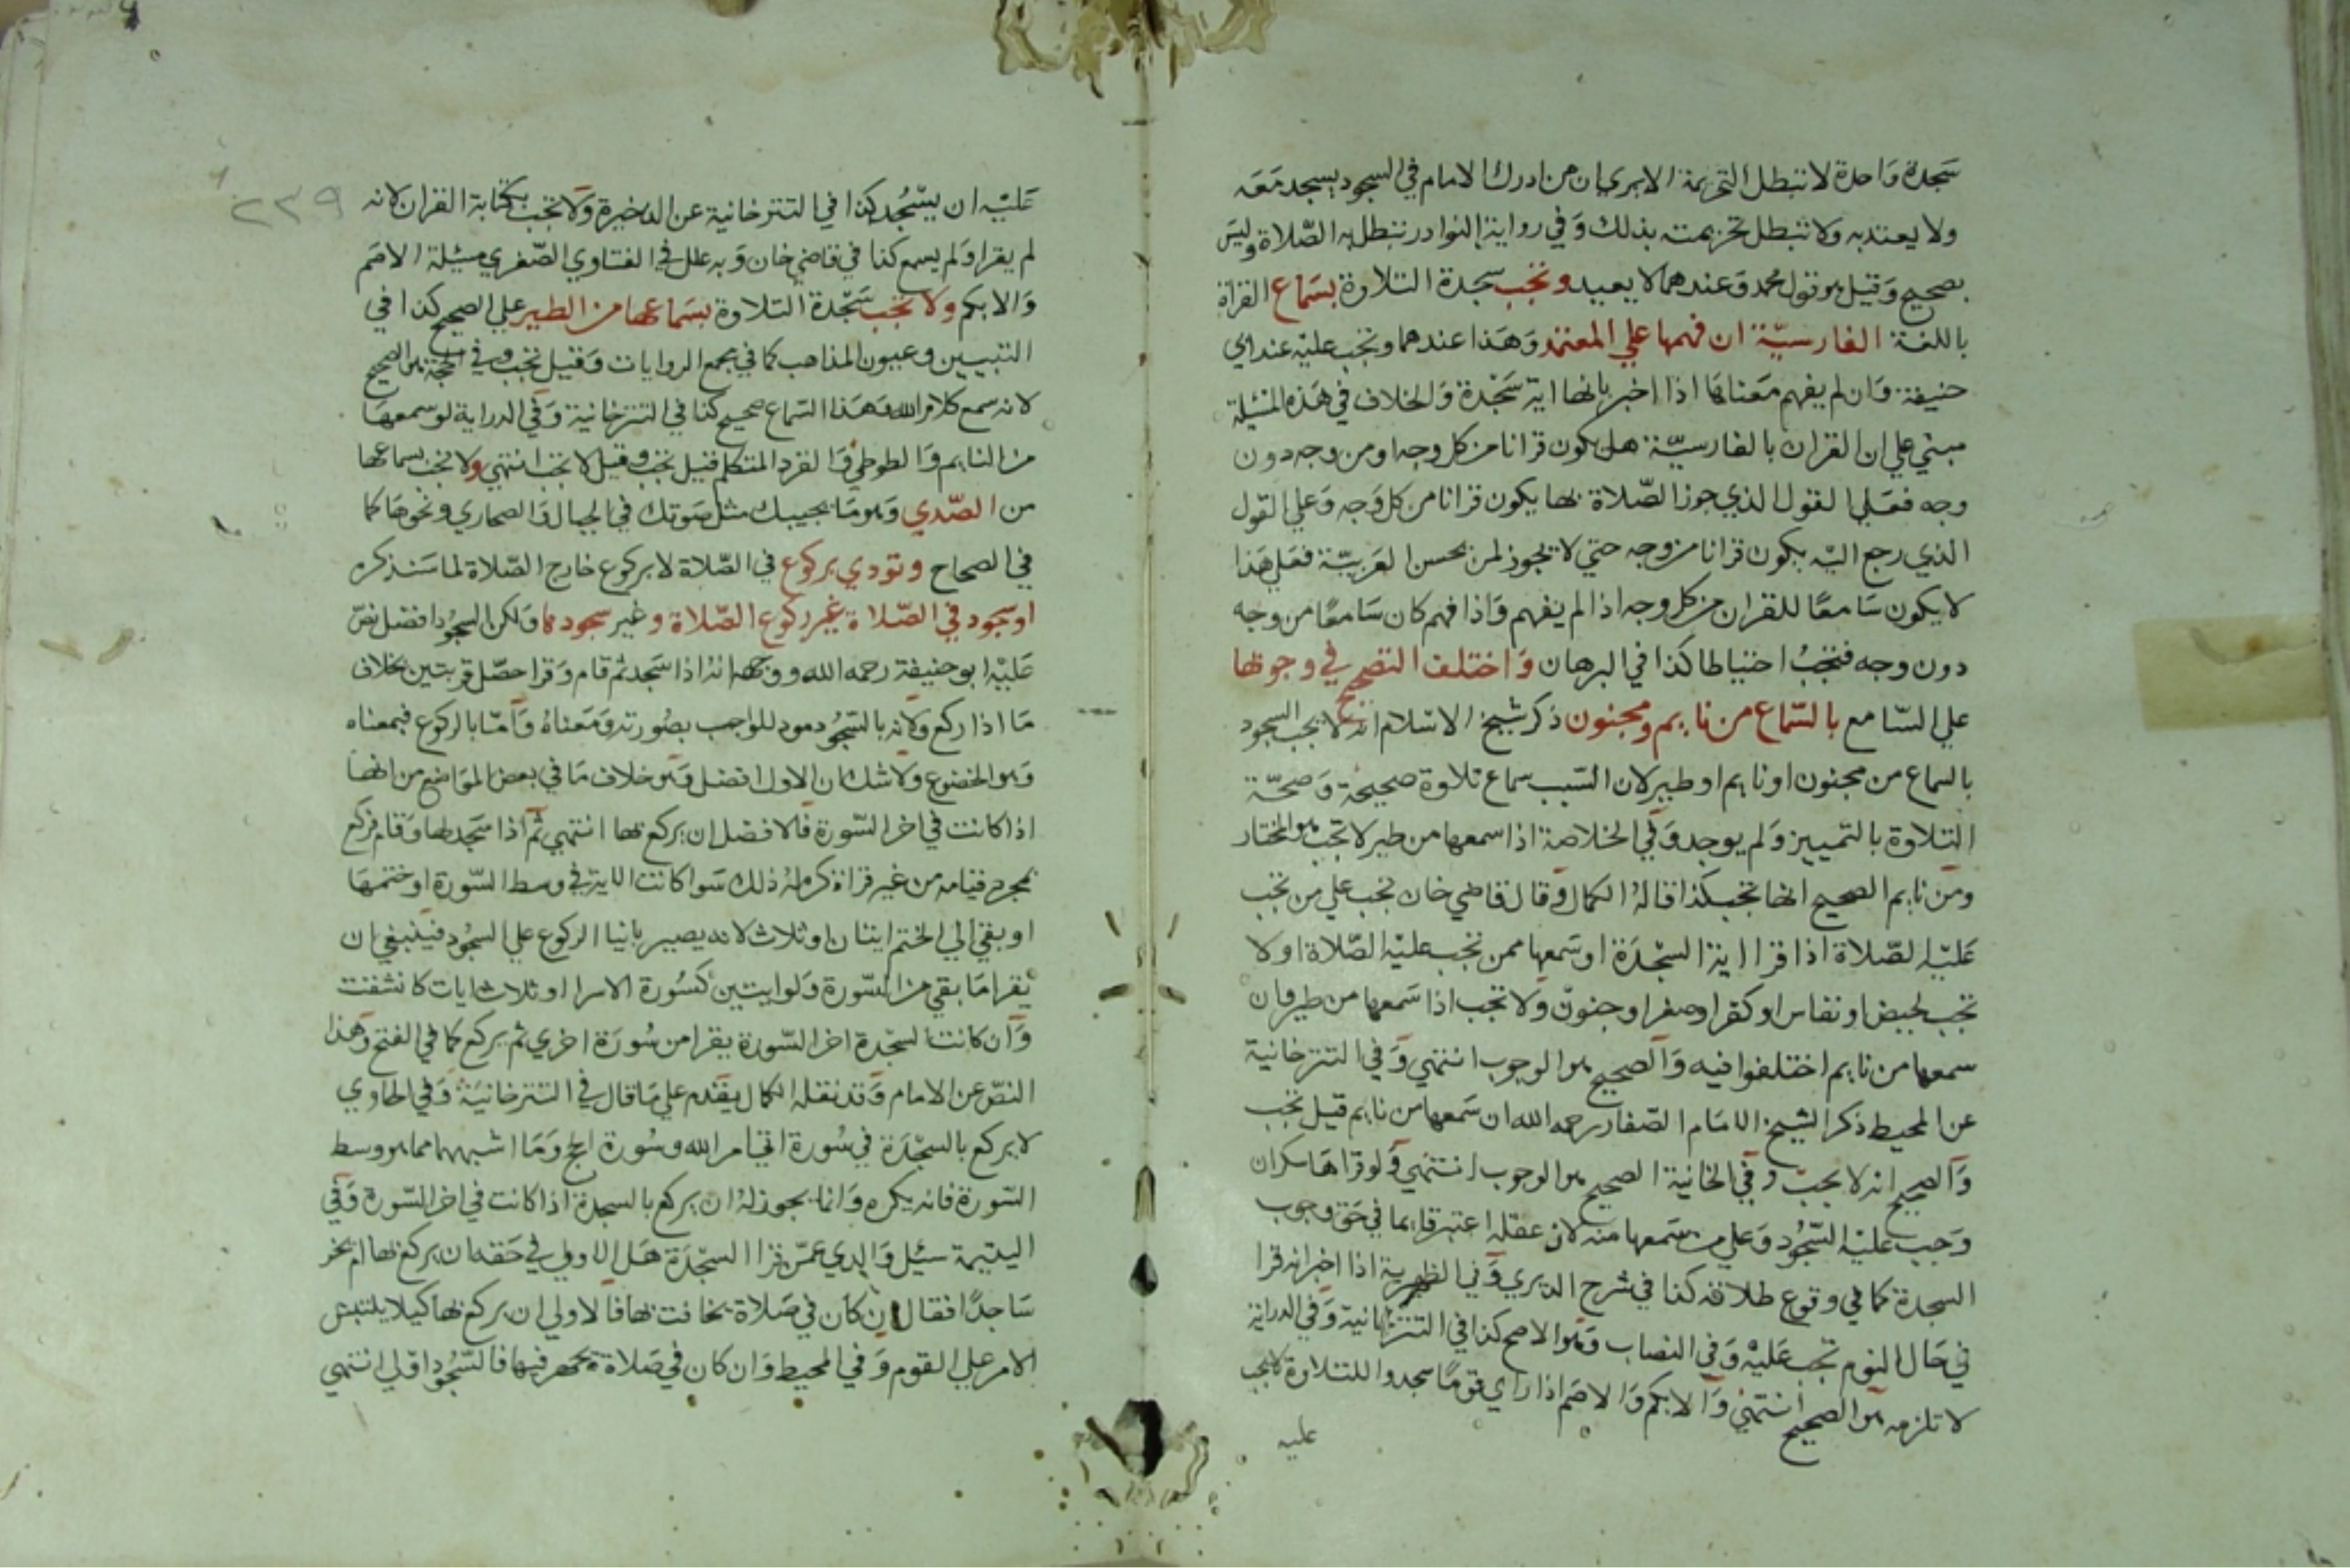 سجدة واحدة لا تبطل التحريمة الا يري ان من ادرك الامام في السجود يسجد معه
ولا يعتد به ولا تبطل تحريمته بذلك وفي رواية النوادر تبطل به الصلاة وليس
بصحيح وقيل هو قول محمد وعندهما لا يعيد وتجب سجدة التلاوة بسماع القراة
باللغة الفارسية ان فهمها علي المعتمد وهذا عندهما وتجب عليه عند ابي
حنيفة وان لم يفهم معناها اذا اخبر بانها اية سجدة والخلاف في هذه المسئلة
مبني علي ان القران بالفارسية هل يكون قرانا من كل وجه او من وجه دون
وجه فعلي القول الذي جوز الصلاة بها يكون قرانا من كل وجه وعلي القول
الذي رجع اليه يكون قرانا من وجه حتي لا يجوز لمن يحسن العربية فعلي هذا
لا يكون سامعا للقران من كل وجه اذا لم يفهم واذا فهم كان سامعا من وجه
دون وجه فتجب احتياطا كذا في البرهان واختلف التصحيح في وجوبها
علي السامع بالسماع من نايم ومجنون ذكر شيخ الاسلام انه لا يجب السجود
بالسماع من مجنون او نايم او طير لان السبب سماع تلاوة صحيحة وصحة
التلاوة بالتمييز ولم يوجد وفي الخلاصة اذا سمعها من طير لا تجب هو المختار
ومن نايم الصحيح انها تجب كذا قاله الكمال وقال قاضي خان تجب علي من تجب
عليه الصلاة اذا قرا اية السجدة او سمعها ممن تجب عليه الصلاة او لا
تجب لحيض او نفاس او كفر او صغر او جنون ولا تجب اذا سمعها من طير وان
سمعها من نايم اختلفوا فيه والصحيح هو الوجوب انتهي وفي التترخانية
عن المحيط ذكر الشيخ الامام الصفار رحمه الله ان سمعها من نايم قيل تجب
والصحيح انه لا يجب وفي الخانية الصحيح هو الوجوب انتهي ولو قراها سكران
وجب عليه السجود وعلي من سمعها منه لان عقله اعتبر قايما في حق وجوب
السجدة كما في وقوع طلاقه كذا في شرح الديري وفي الظهيرية اذا اخبر انه قرا
في حال النوم تجب عليه وفي النصاب وهو الاصح كذا في التترخانية وفي الدراية
لا تلزمه هو الصحيح انتهي والابكم والاصم اذا راي قوما سجدوا للتلاوة لا يجب
عليه
٢٣٩
عليه ان يسجد كذا في التترخانية عن الذخيرة ولا تجب بكتابة القران لانه
لم يقرا ولم يسمع كذا في قاضي خان وبه علل في الفتاوي الصغري مسئلة الاصم
والابكم ولا تجب سجدة التلاوة بسماعها من الطير علي الصحيح كذا في
التبيين وعيون المذاهب كما في مجمع الروايات وقيل تجب وفي الحجة هو الصحيح
لانه سمع كلام الله وهذا السماع صحيح كذا في التترخانية وفي الدراية لو سمعها
من النايم والطوطي والقرد المتكلم قيل تجب وقيل لا تجب انتهي ولا تجب بسماعها
من الصدي وهو ما يجيبك مثل صوتك في الجبال والصحاري ونحوها كما
في الصحاح وتودي بركوع في الصلاة لا بركوع خارج الصلاة لما سنذكره
او سجود في الصلاة غير ركوع الصلاة وغير سجودها ولكن السجود افضل نص
عليه ابو حنيفة رحمه الله ووجهه انه اذا سجد ثم قام وقرا حصل قربتين بخلاف
ما اذا ركع ولانه بالسجود مود للواجب بصورته ومعناه واما بالركوع فبمعناه
وهو الخضوع ولا شك ان الاول افضل وهو خلاف ما في بعض المواضع من انها
اذا كانت في اخر السورة فالافضل ان يركع بها انتهي ثم اذا سجد لها وقام فركع
بمجرد قيامه من غير قراة كره له ذلك سوا كانت الاية في وسط السورة او ختمها
او بقي الي الختم ايتان او ثلاث لانه يصير بانيا الركوع علي السجود فينبغي ان
يقرا ما بقي من السورة ولو ايتين كسورة الاسرا او ثلاث ايات كانشقت
وان كانت السجدة اخر السورة يقرا من سورة اخري ثم يركع كما في الفتح وهذا
النص عن الامام وقد نقله الكمال يقدم علي ما قال في التترخانية وفي الحاوي
لا يركع بالسجدة في سورة اتي امر الله وسورة الحج وما اشبههما مما هو وسط
السورة فانه يكره وانما يجوز له ان يركع بالسجدة اذا كانت في اخر السورة وفي
اليتيمة سئل والدي عمن قرا السجدة هل الاولي في حقه ان يركع بها ام يخر
ساجدا فقال ان كان في صلاة يخافت بها فالاولي ان يركع بها كيلا يلتبس
الامر علي القوم وفي المحيط وان كان في صلاة يجهر فيها فالسجود اولي انتهي